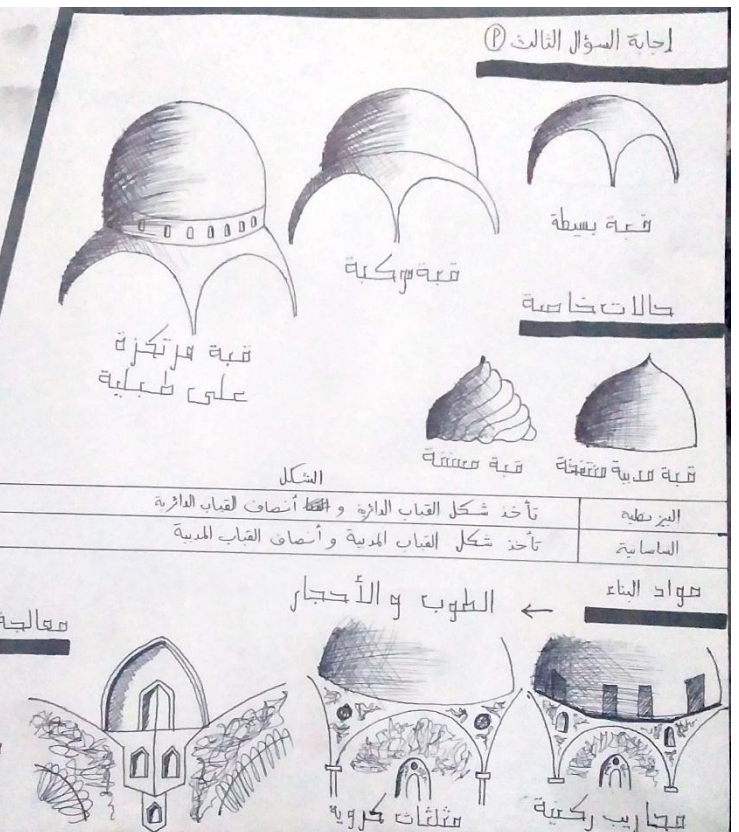 إجابة السؤال الثالث (أ)
قبة بسيطة
قبة مركبة
قبة مرتكزة
على طبلية
حالات خاصة
قبة مدببة منتفخة
قبة مسننة
الشكل
البيزنطية
تأخذ شكل القباب الدائرية و أنصاف القباب الدائرية
الساسانية
تأخذ شكل القباب المدببة و أنصاف القباب المدببة
مواد البناء
← الطوب والأحجار
معالجة
محاريب ركنية
مثلثات كروية